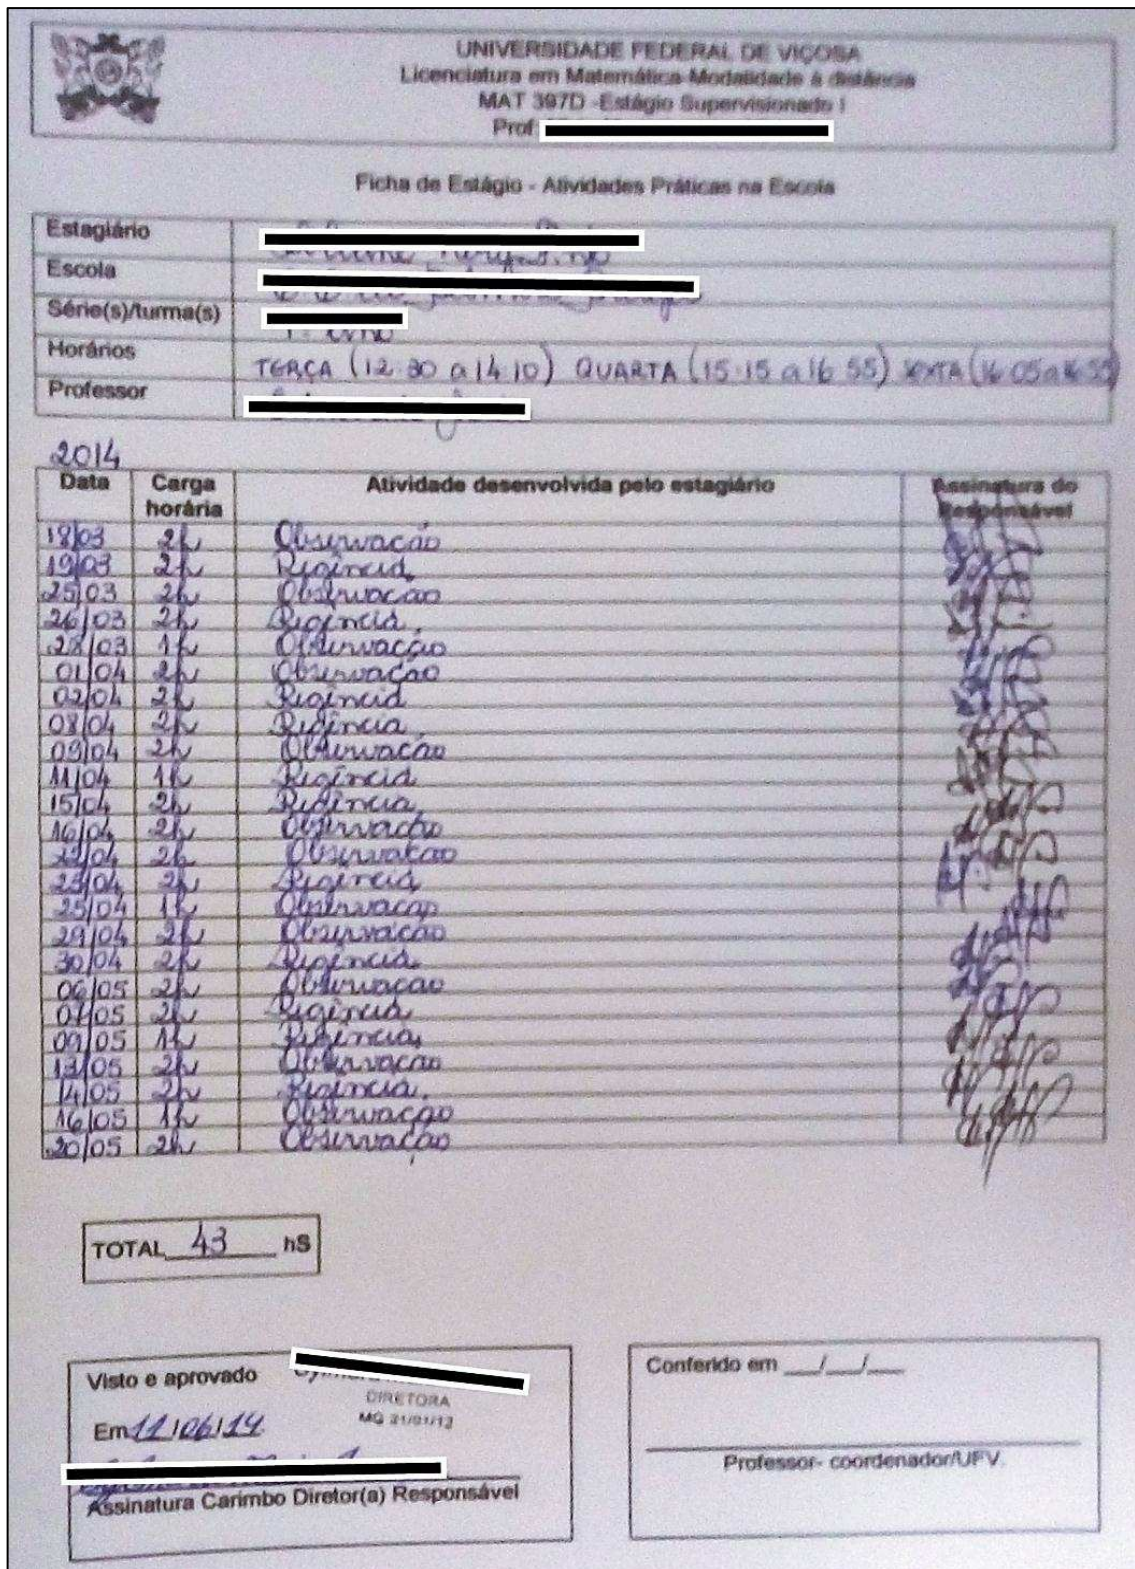 UNIVERSIDADE FEDERAL DE VIÇOSA
Licenciatura em Matemática-Modalidade à distância
MAT 397D -Estágio Supervisionado I
Prof:
Ficha de Estágio - Atividades Práticas na Escola
Estagiário
Escola
Série(s)/turma(s)
Horários TERÇA (12:30 a 14:10) QUARTA (15:15 a 16:55) SEXTA (16:05 a 16:55)
Professor
2014
Data Carga horária Atividade desenvolvida pelo estagiário Assinatura do Responsável
18/03 2h Observação
19/03 2h Regência
25/03 2h Observação
26/03 2h Regência
28/03 1h Observação
01/04 2h Observação
02/04 2h Regência
08/04 2h Regência
09/04 2h Observação
11/04 1h Regência
15/04 2h Regência
16/04 2h Observação
22/04 2h Observação
23/04 2h Regência
25/04 1h Observação
29/04 2h Observação
30/04 2h Regência
06/05 2h Observação
07/05 2h Regência
09/05 1h Regência
13/05 2h Observação
14/05 2h Regência
16/05 1h Observação
20/05 2h Observação
TOTAL 43 hS
Visto e aprovado
DIRETORA
MG 31/01/12
Em 11/06/14
Assinatura Carimbo Diretor(a) Responsável
Conferido em __/__/__
Professor- coordenador/UFV.